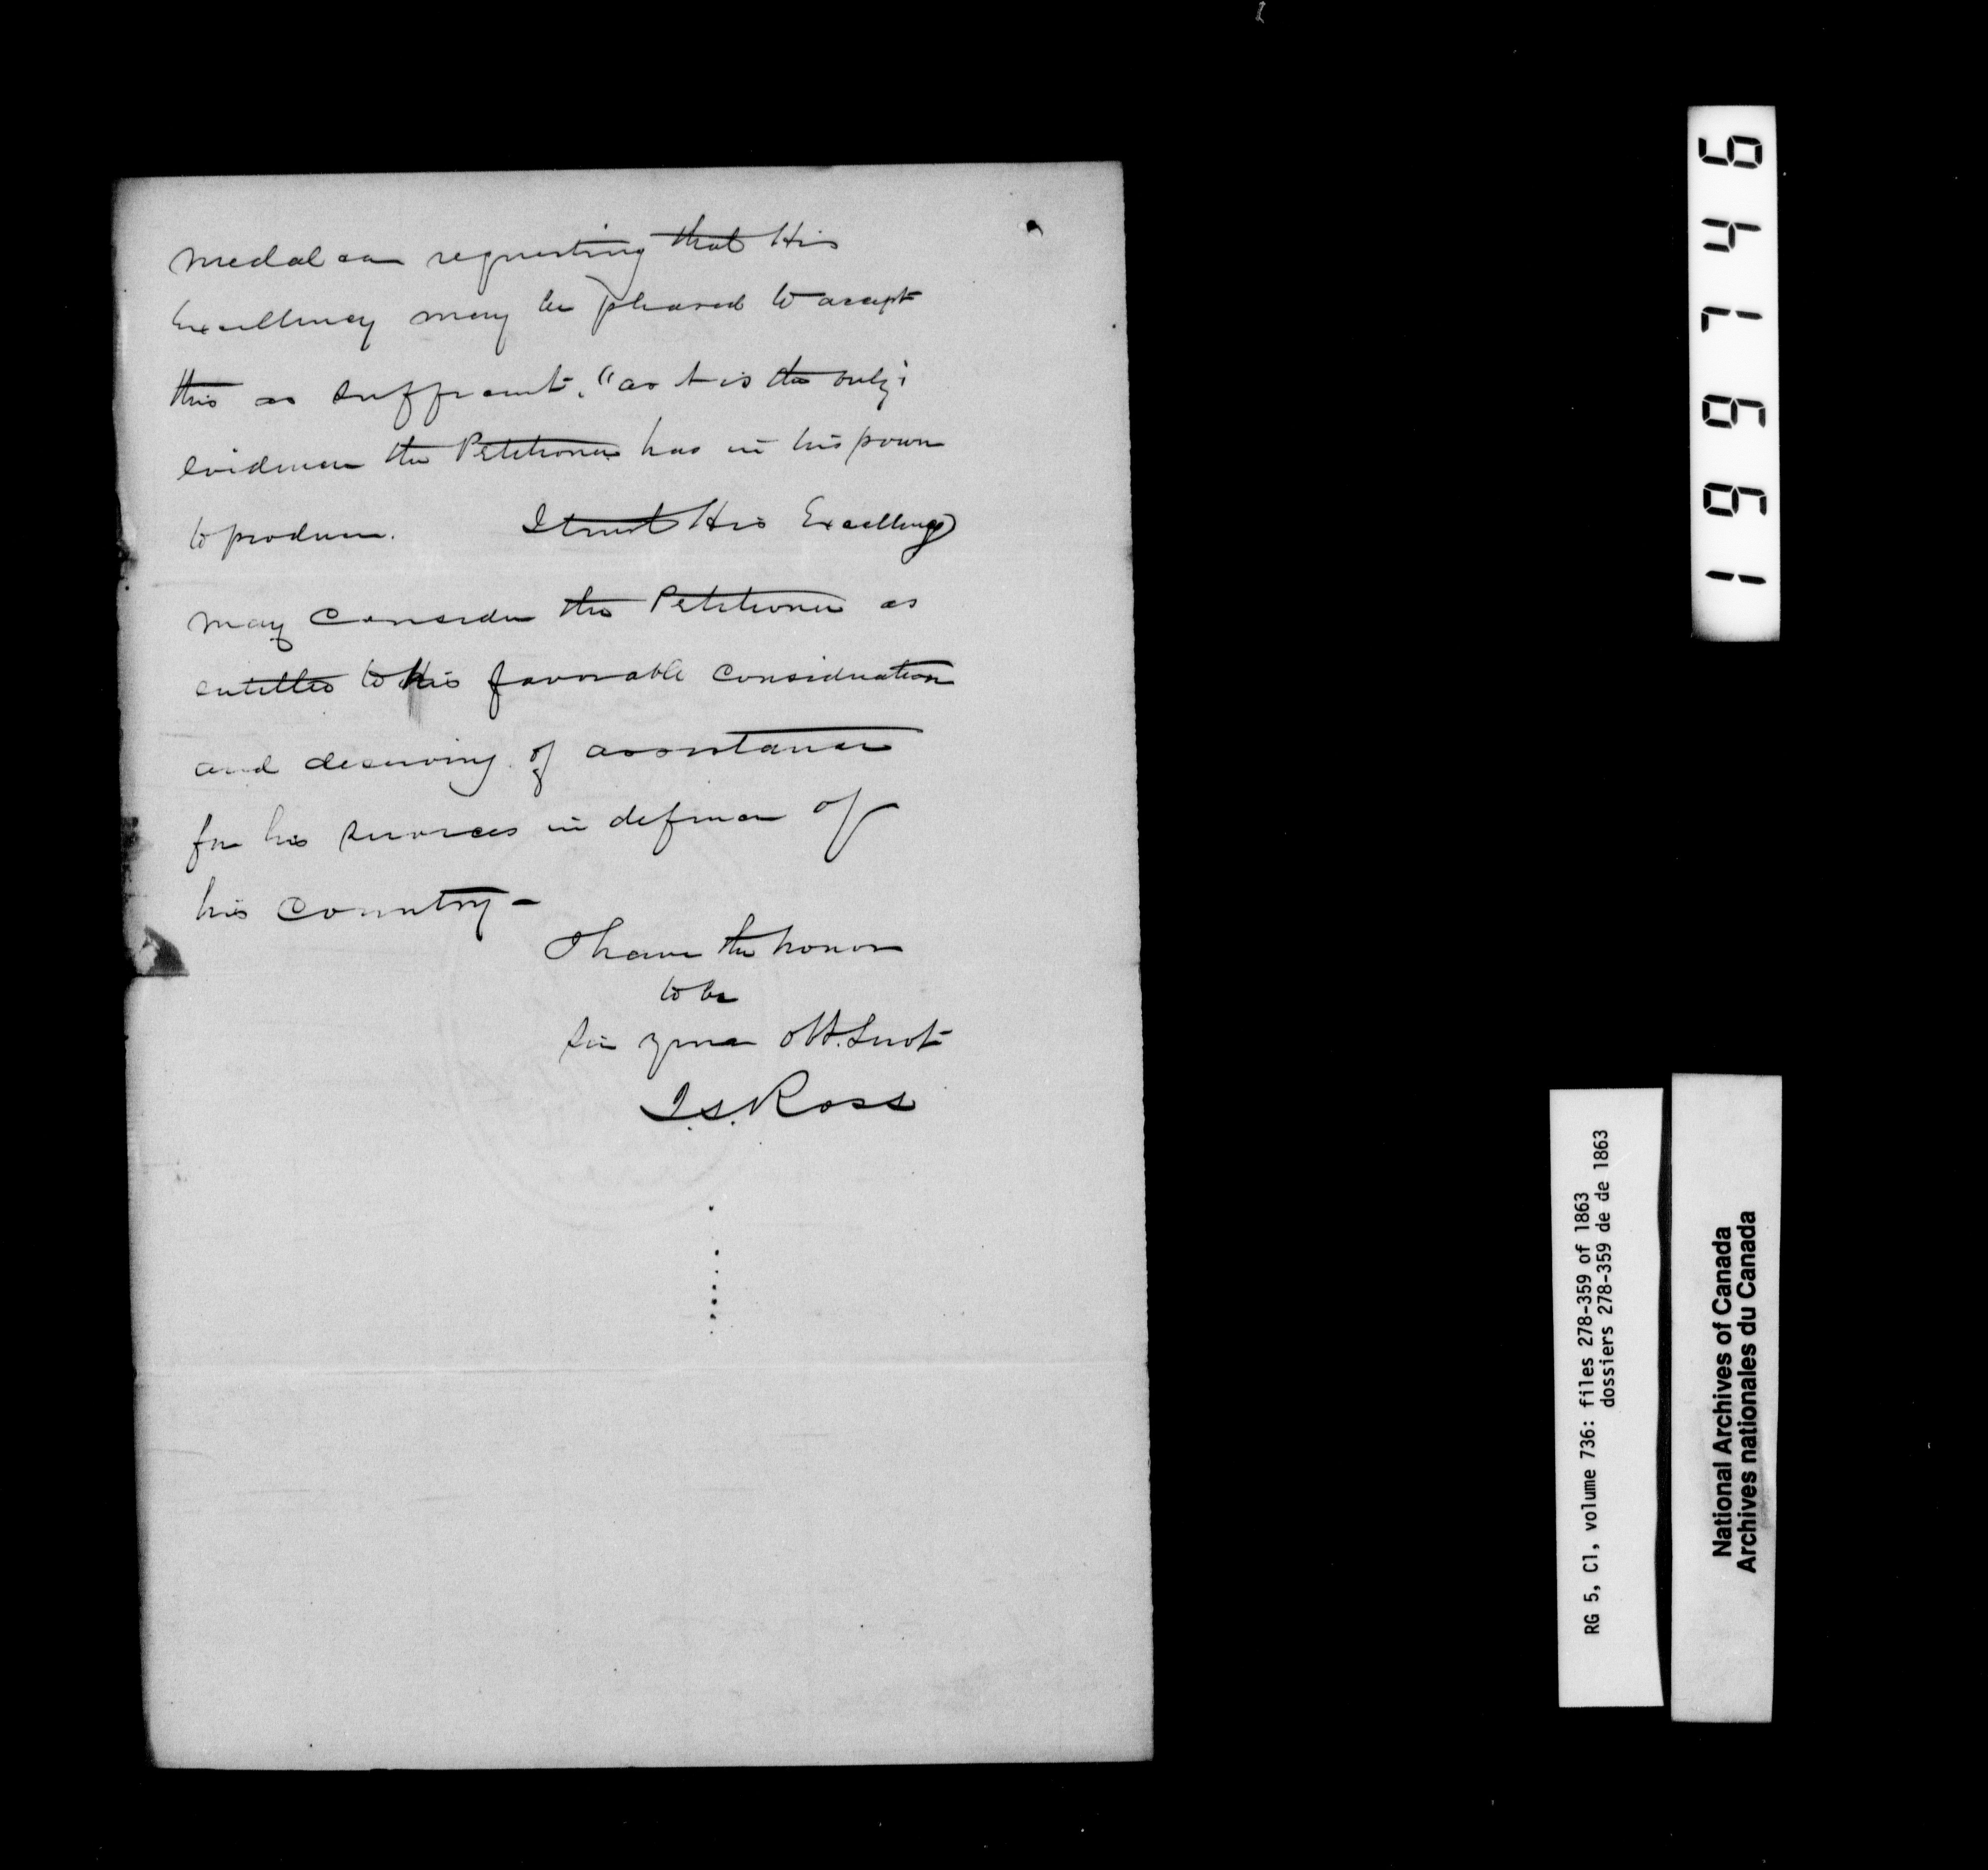 medal are requesting that His
Excellency may be pleased to accept
this as sufficient, "as it is the only"
evidence the Petitioner has in his power
to produce. I trust His Excellency
may consider the Petitioner as
entitled to His favorable consideration
and deserving of assistance
for his services in defence of
his country -
I have the honor
to be
Sir your Obt. Servt
J.S. Ross
196746
RG 5, C1, volume 736: files 278-359 of 1863
dossiers 278-359 de de 1863
National Archives of Canada
Archives nationales du Canada